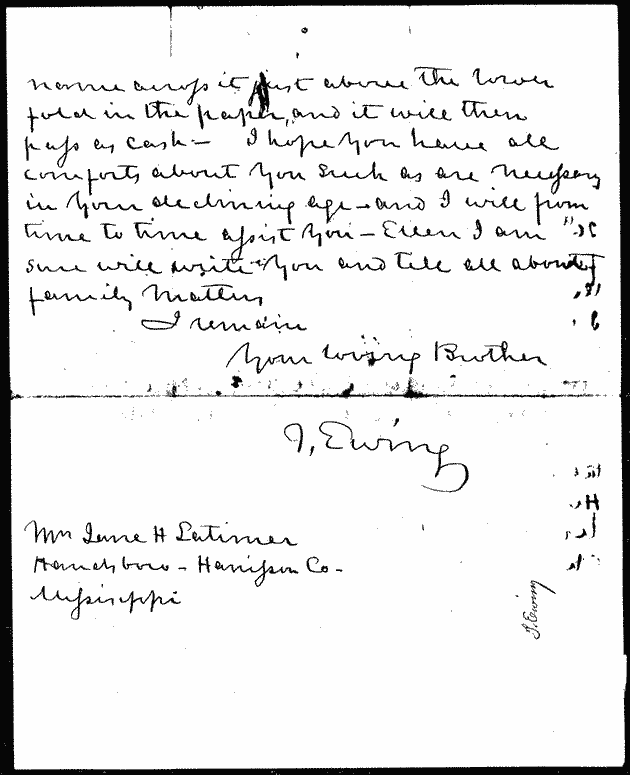 name across it just above the lower
fold in the paper, and it will then
pass as cash — I hope you have all
comforts about you such as are necessary
in your declining age — and I will from
time to time assist you — Ellen I am
sure will write you and tell all about
family matters
I remain
Your loving Brother
J. Ewing
Mrs Jane H Latimer
Handsboro — Harrison Co —
Missisippi
J. Ewing